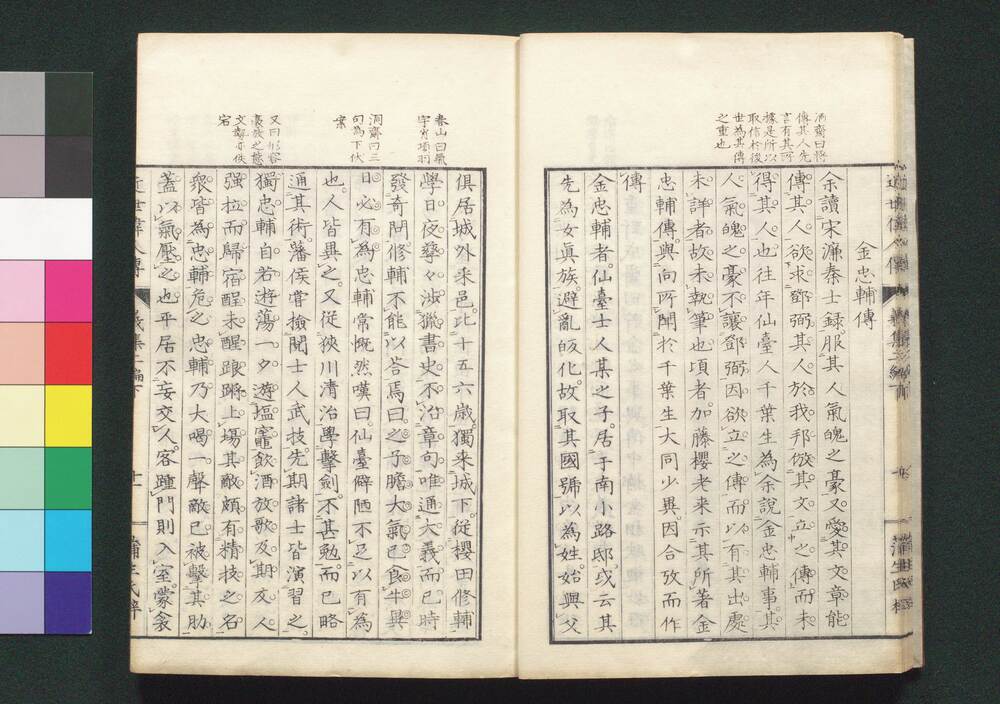 金忠輔傳
余讀宋濂秦士録服其人氣魄之豪又愛其文章能
傳其人欲求鄧弼其人於我邦倣其文立之傳而未
得其人也往年仙臺人千葉生為余說金忠輔事其
人氣魄之豪不讓鄧弼因欲立之傳而以有其出處
未詳者故未執筆也頃者加藤櫻老来示其所著金
忠輔傳與向所聞於千葉生大同少異因合攷而作
傳
金忠輔者仙臺士人某之子居于南小路邸或云其
先為女眞族避亂皈化故取其國號以為姓始興父
傳其人先
言有其所
據是所以
取信於後
世為其傳
之重也
俱居城外采邑比十五六歳獨来城下從櫻田修輔
學日夜孳々渉獵書史不治章句唯通大義而已時
發奇問修輔不能以答焉曰之子膽大氣已食牛異
日必有為忠輔常慨然嘆曰仙臺僻陋不足以有為
也人皆異之又從狹川清治學擊劍不甚勉而已略
通其術藩侯嘗撿閲士人武技先期諸士皆演習之
獨忠輔自若遊蕩一夕遊塩竈飲酒放歌及期友人
强拉而歸宿酲未醒踉蹡上塲其敵頗有精技之名
衆皆為忠輔危之忠輔乃大喝一聲敵已被擊其肋
蓋以氣壓之也平居不妄交人客踵門則入室蒙衾
春山曰氣
宇肖項羽
洞齋曰三
句為下伏
案
又曰形容
豪放之態
十一